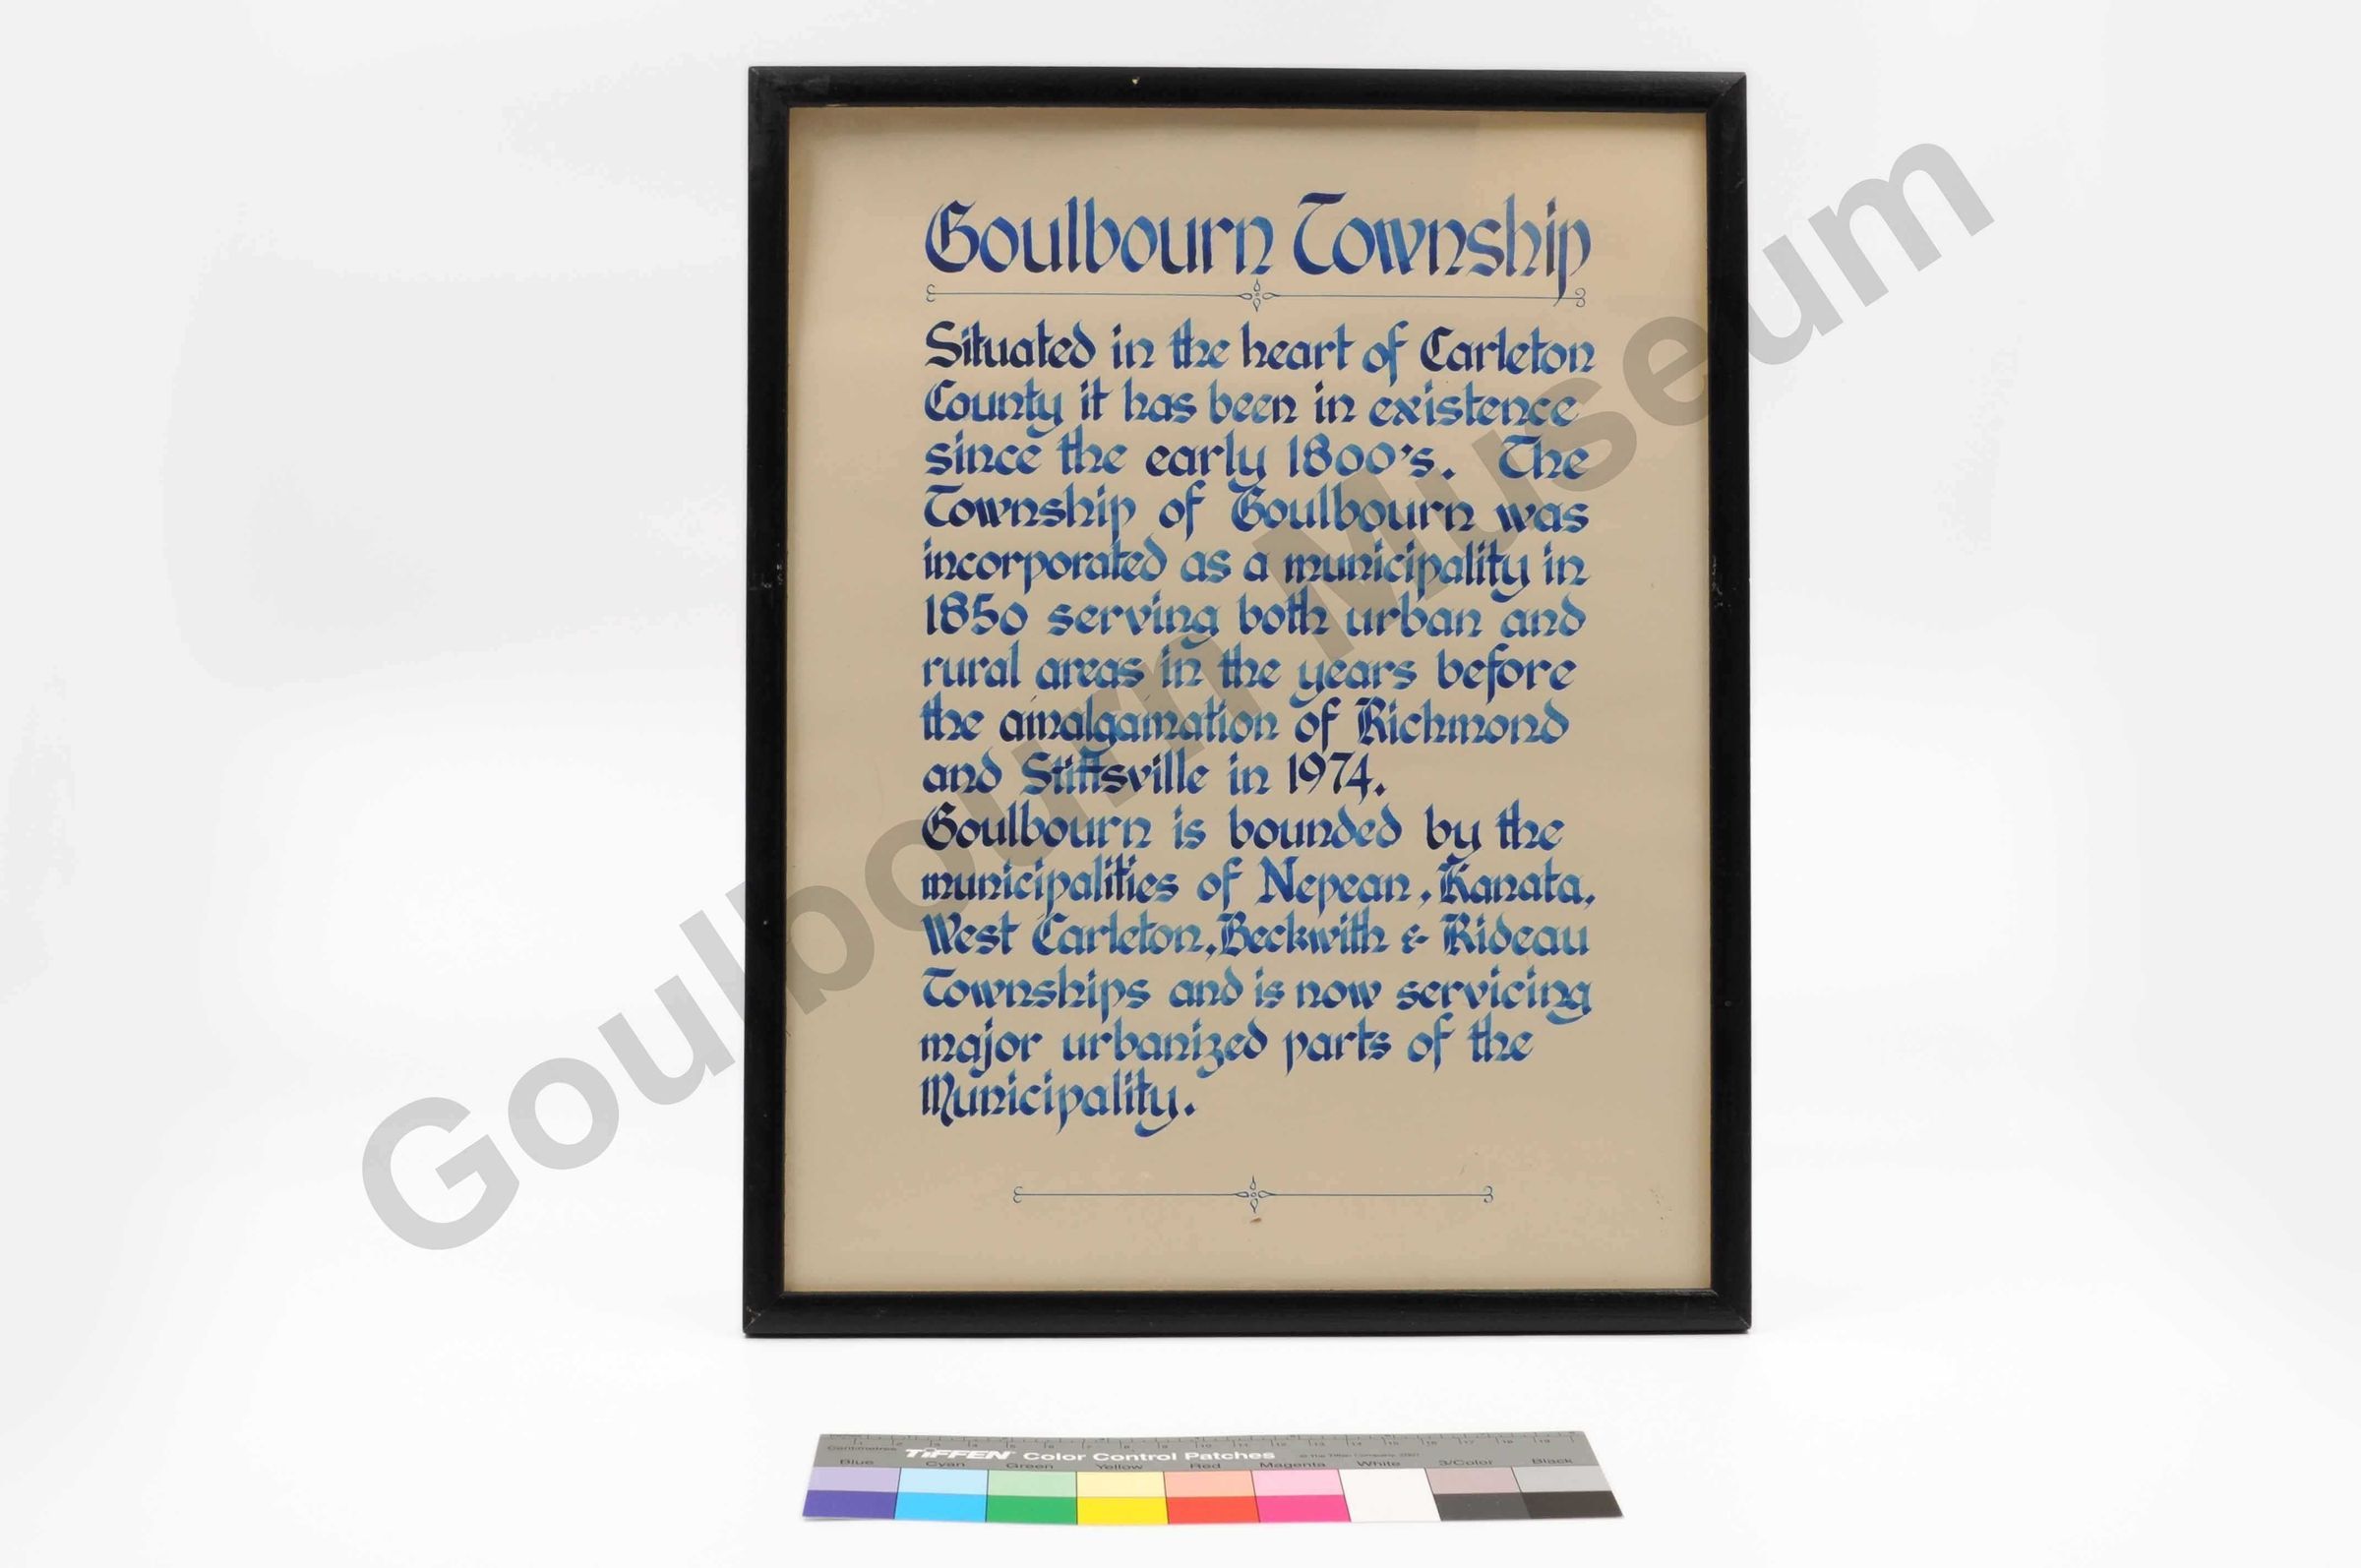 Goulbourn Township
Situated in the heart of Carleton
County it has been in existence
since the early 1800's. The
Township of Goulbourn was
incorporated as a municipality in
1850 serving both urban and
rural areas in the years before
the amalgamation of Richmond
and Stittsville in 1974.
Goulbourn is bounded by the
municipalities of Nepean, Kanata,
West Carleton, Beckwith & Rideau
Townships and is now servicing
major urbanized parts of the
Municipality.
Goulbourn Museum
Centimetres
TIFFEN Color Control Patches
Blue Cyan Green Yellow Red Magenta White 3/Color Black